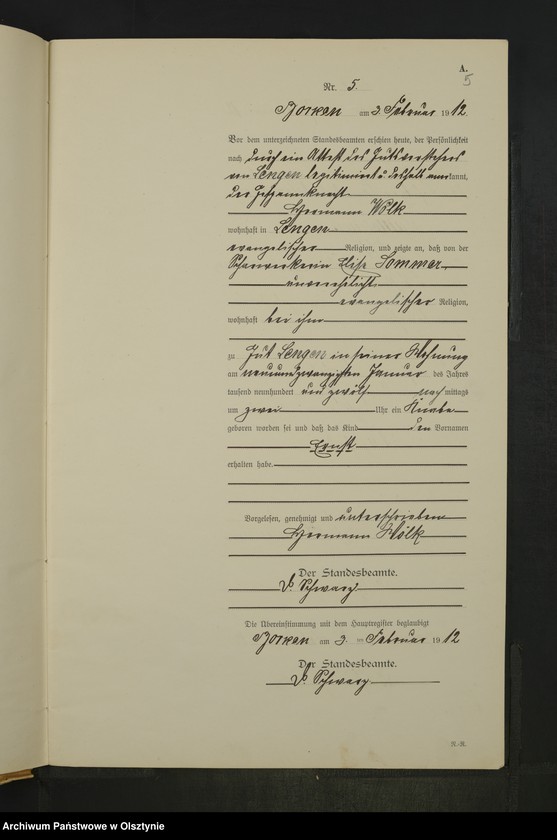 A.
5
Nr. 5.
Borken am 3. Februar 1912.
Vor dem unterzeichneten Standesbeamten erschien heute, der Persönlichkeit
nach durch ein Attest des Gutsvorstehers
von Lengen legitimiert u. deshalb anerkannt,
der Gespannknecht
Hermann Wölk
wohnhaft in Lengen
evangelischer Religion, und zeigte an, daß von der
Scharwerkerin Elise Sommer
unverehelicht
evangelischer Religion,
wohnhaft bei ihm
zu Gut Lengen in seiner Wohnung
am neunundzwanzigsten Januar des Jahres
tausend neunhundert und zwölf nachmittags
um zwei Uhr ein Knabe
geboren worden sei und daß das Kind den Vornamen
Ernst
erhalten habe.
Vorgelesen, genehmigt und unterschrieben
Hermann Wölk
Der Standesbeamte.
Schwarz
Die Übereinstimmung mit dem Hauptregister beglaubigt
Borken am 3. Februar 1912
Der Standesbeamte.
Schwarz
Archiwum Państwowe w Olsztynie